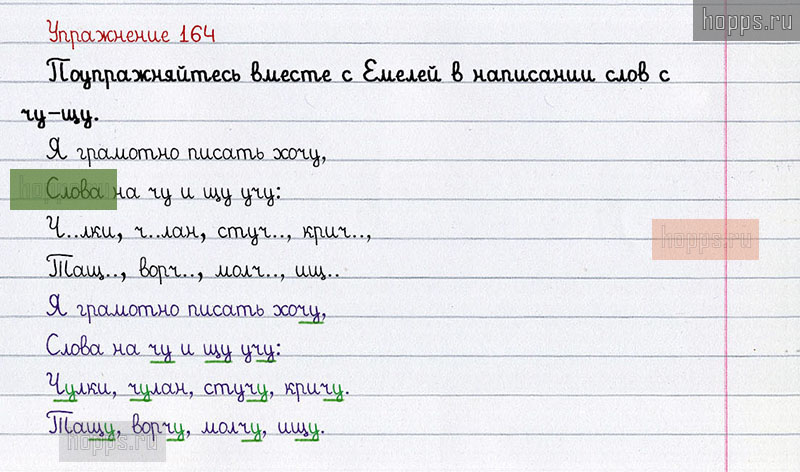 hopps.ru
Упражнение 164
Поупражняйтесь вместе с Емелей в написании слов с
чу-щу.
Я грамотно писать хочу,
Слова на чу и щу учу:
Ч..лки, ч..лан, стуч.., крич..,
hopps.ru
Тащ.., ворч.., молч.., ищ..
Я грамотно писать хочу,
Слова на чу и щу учу:
Чулки, чулан, стучу, кричу.
Тащу, ворчу, молчу, ищу.
hopps.ru